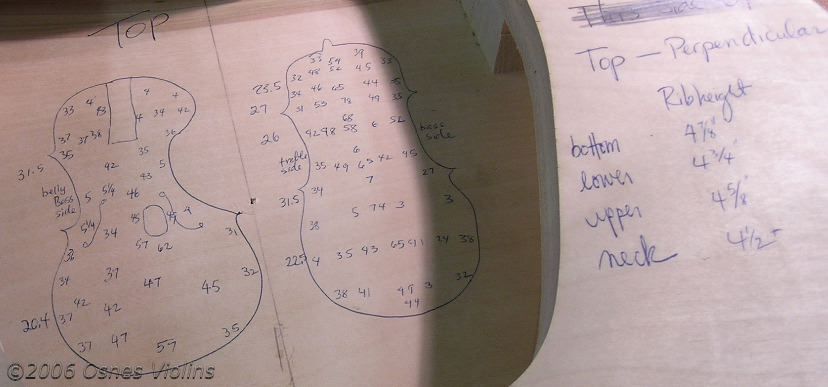 Top
33 4 43 4 4
4 34 42
37 37 38 36
35 35
31.5
42 5
43
belly
Bass
side
5 5/4 46 9
5/4 34 45 45 4
57 62 31
36
34 37 47 45 32
42 42
20.4 37
37 47 57 35
33 54 39 33
32 48 52 45
23.5
34 46 65 44 35
27
31 53 78 49 35
68
26 42 48 58 6 52
bass
side
treble
side
6
35 49 65 42 45
7 27
31.5 34
5 74 3 3
38
22.5 4 35 43 65 41 34 38
38 41 49 3 32
44
This side up
Top - Perpendicular
Rib height
bottom 4 7/8"
lower 4 3/4"
upper 4 5/8"
neck 4 1/2"+
©2006 Osnes Violins